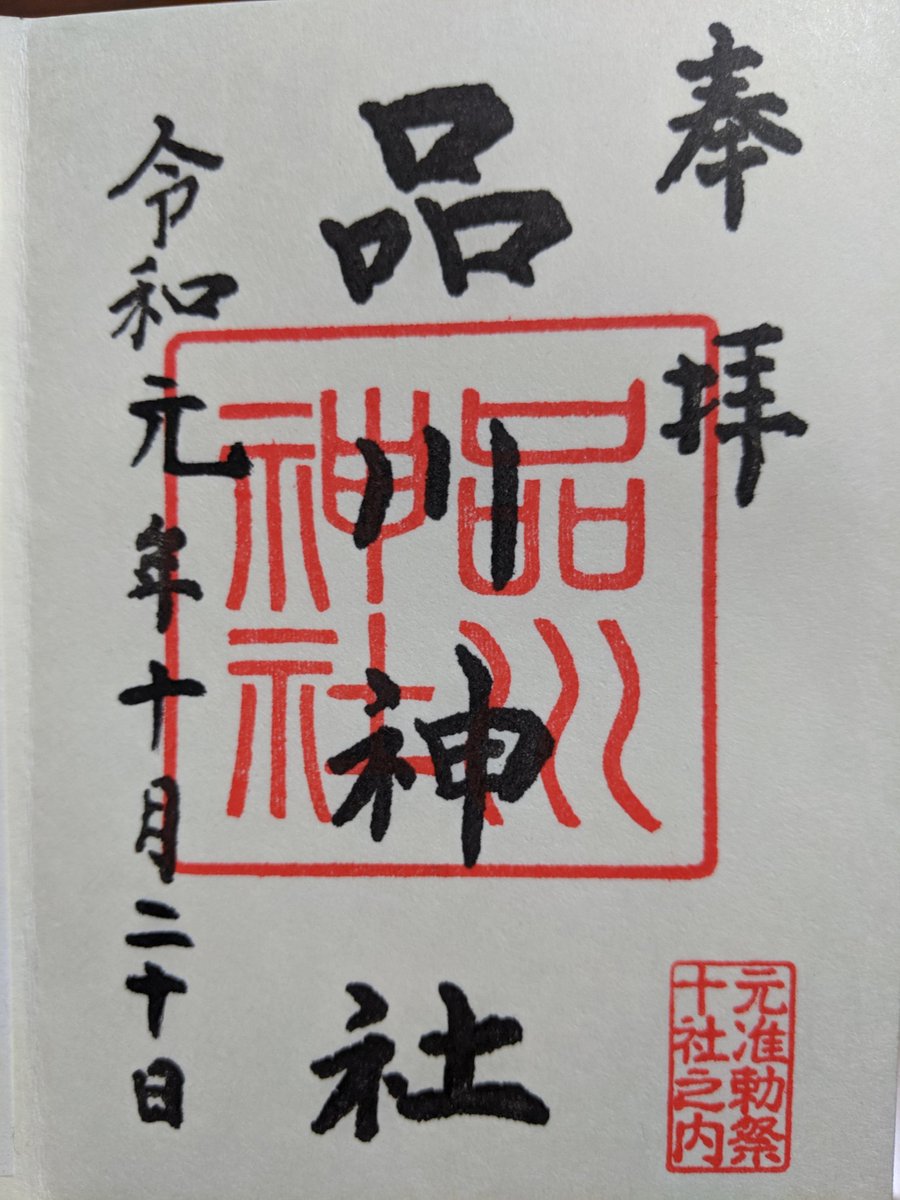 奉拝
品川神社
令和元年十月二十日
品川
神社
元准勅祭
十社之内